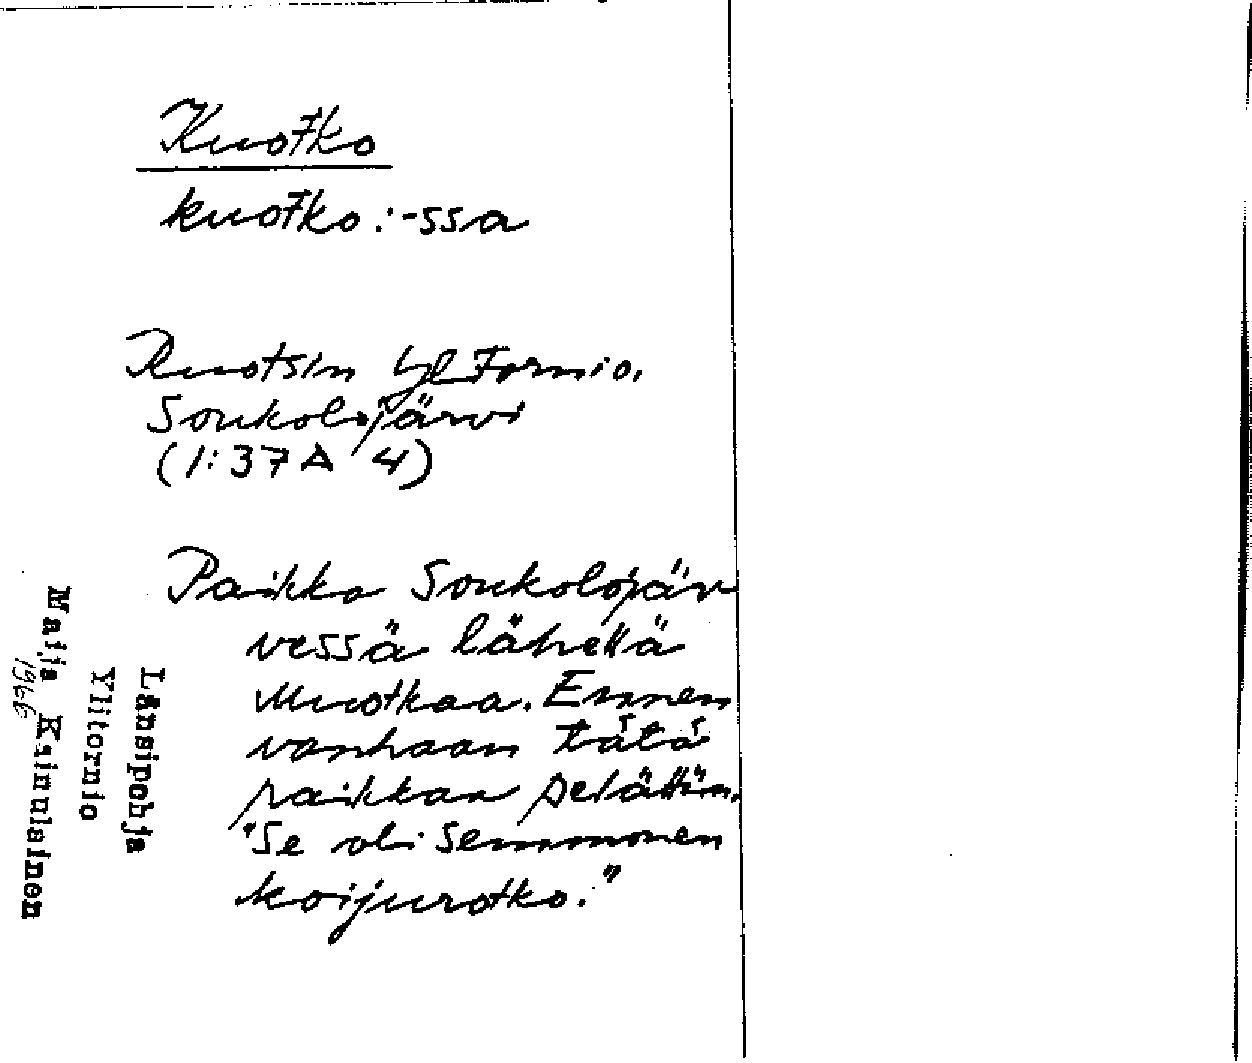 Kuotko
kuotko: -ssa
Ruotsin Yl.Tornio.
Soukolojärvi
(1:37A 4)
Paikka Soukolojär
vessä lähellä
Muotkaa. Ennen
vanhaan tätä
paikkaa pelättiin.
"Se oli semmonen
koijurotko."
Länsipohja
Ylitornio
Maija Kainulainen
1966